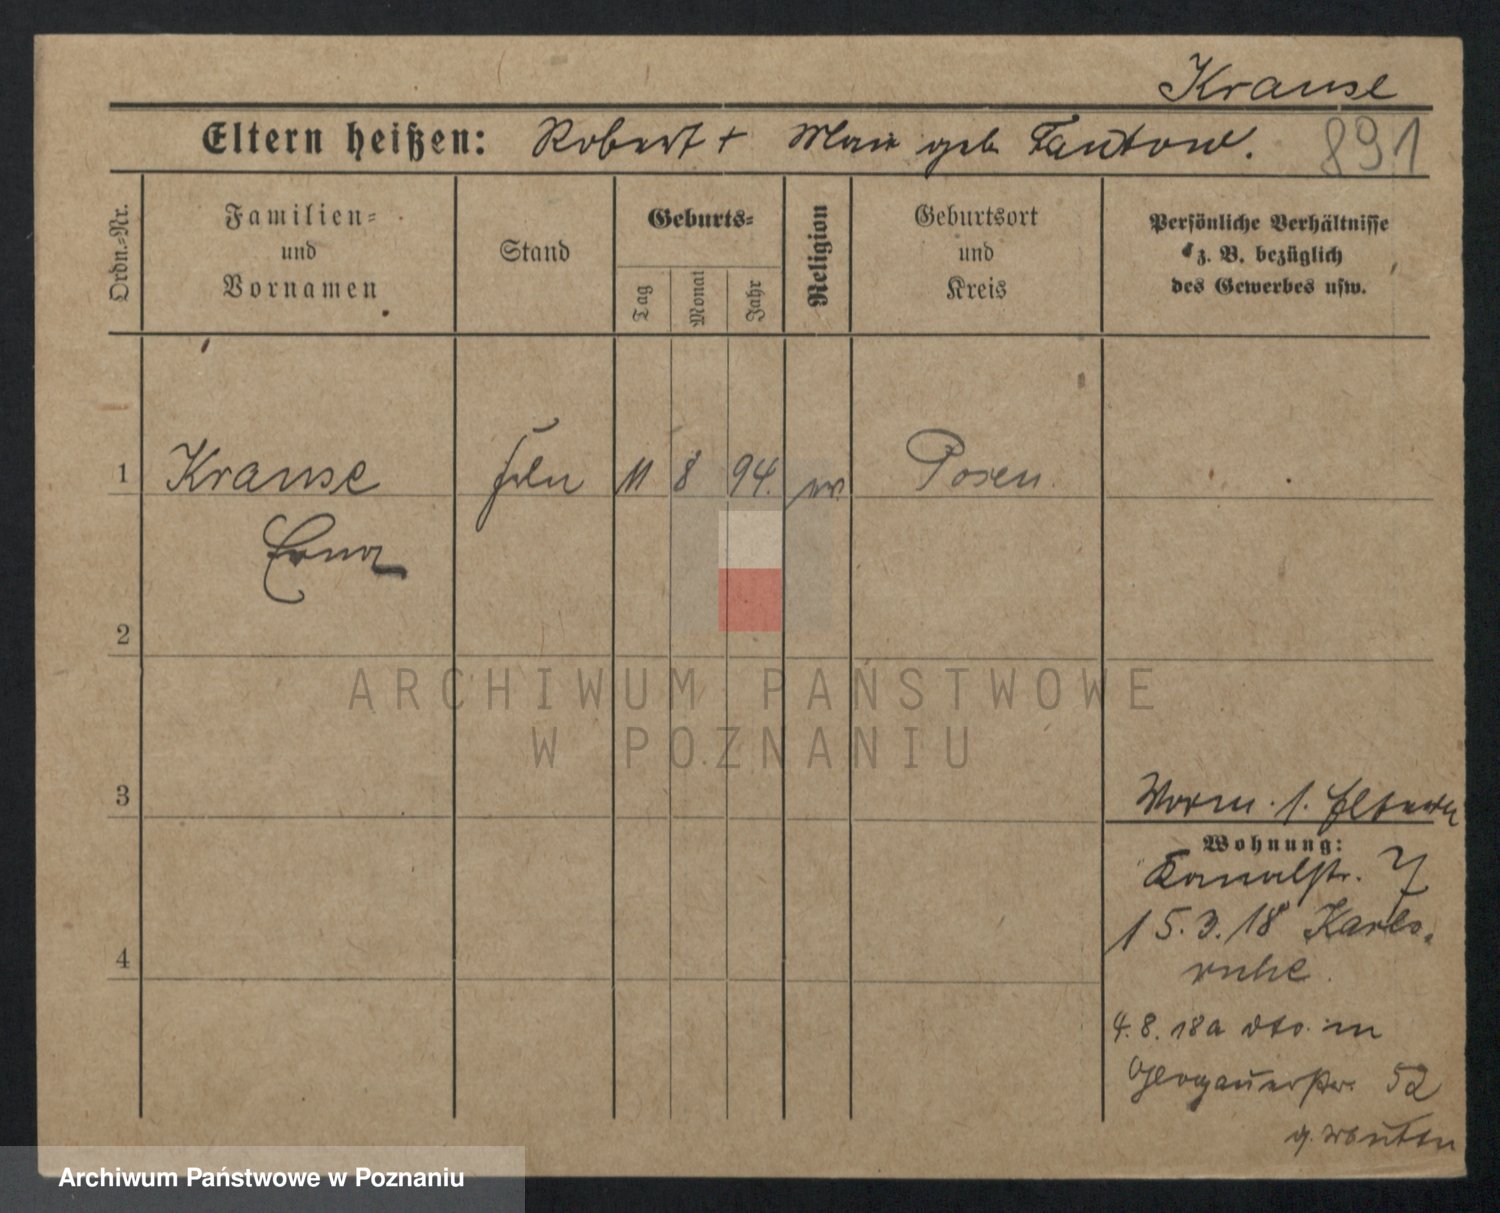 Krause
Eltern heißen: Robert + Marie geb Tantow.
891
Ordn.=Nr.
Familien=
und
Vornamen
Stand
Geburts=
Tag
Monat
Jahr
Religion
Geburtsort
und
Kreis
Persönliche Verhältnisse
z. B. bezüglich
des Gewerbes usw.
1 Krause 11 8 94. Posen
Erna
2
ARCHIWUM PAŃSTWOWE
W POZNANIU
3
Eltern
Wohnung:
Kanalstr. 7
15.3.18 Karls-
ruhe.
4
4.8.18 a dto. in
Glogauerstr. 52
Archiwum Państwowe w Poznaniu